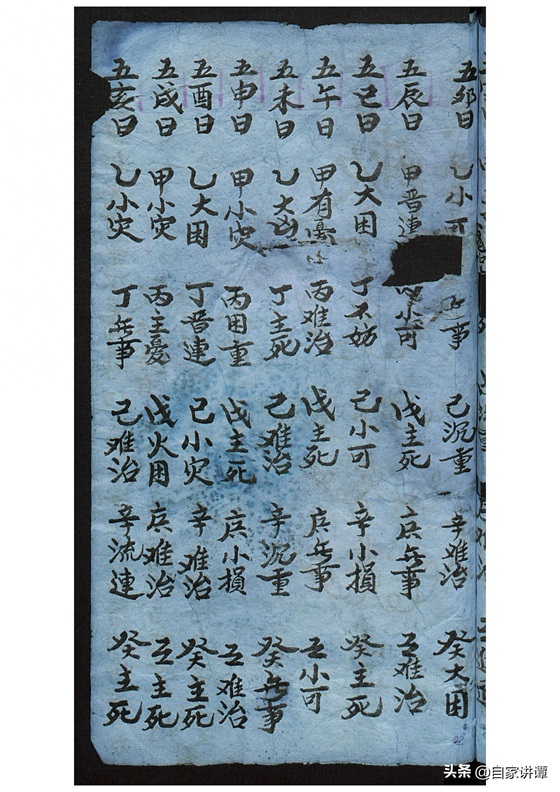 五卯日 乙小可 事 己沉重 辛难治 癸大困
五辰日 甲晋連 小可 戊主死 庚无事 壬难治
五巳日 乙大困 丁不妨 己小可 辛小損 癸主死
五午日 甲有憂 丙难治 戊主死 庚无事 壬小可
五未日 乙大凶 丁主死 己难治 辛沉重 癸无事
五申日 甲小灾 丙困重 戊主死 庚小損 壬难治
五酉日 乙大困 丁晋連 己小灾 辛难治 癸主死
五戌日 甲小灾 丙主憂 戊火困 庚难治 壬主死
五亥日 乙小灾 丁无事 己难治 辛流連 癸主死
头条 @自家讲谭